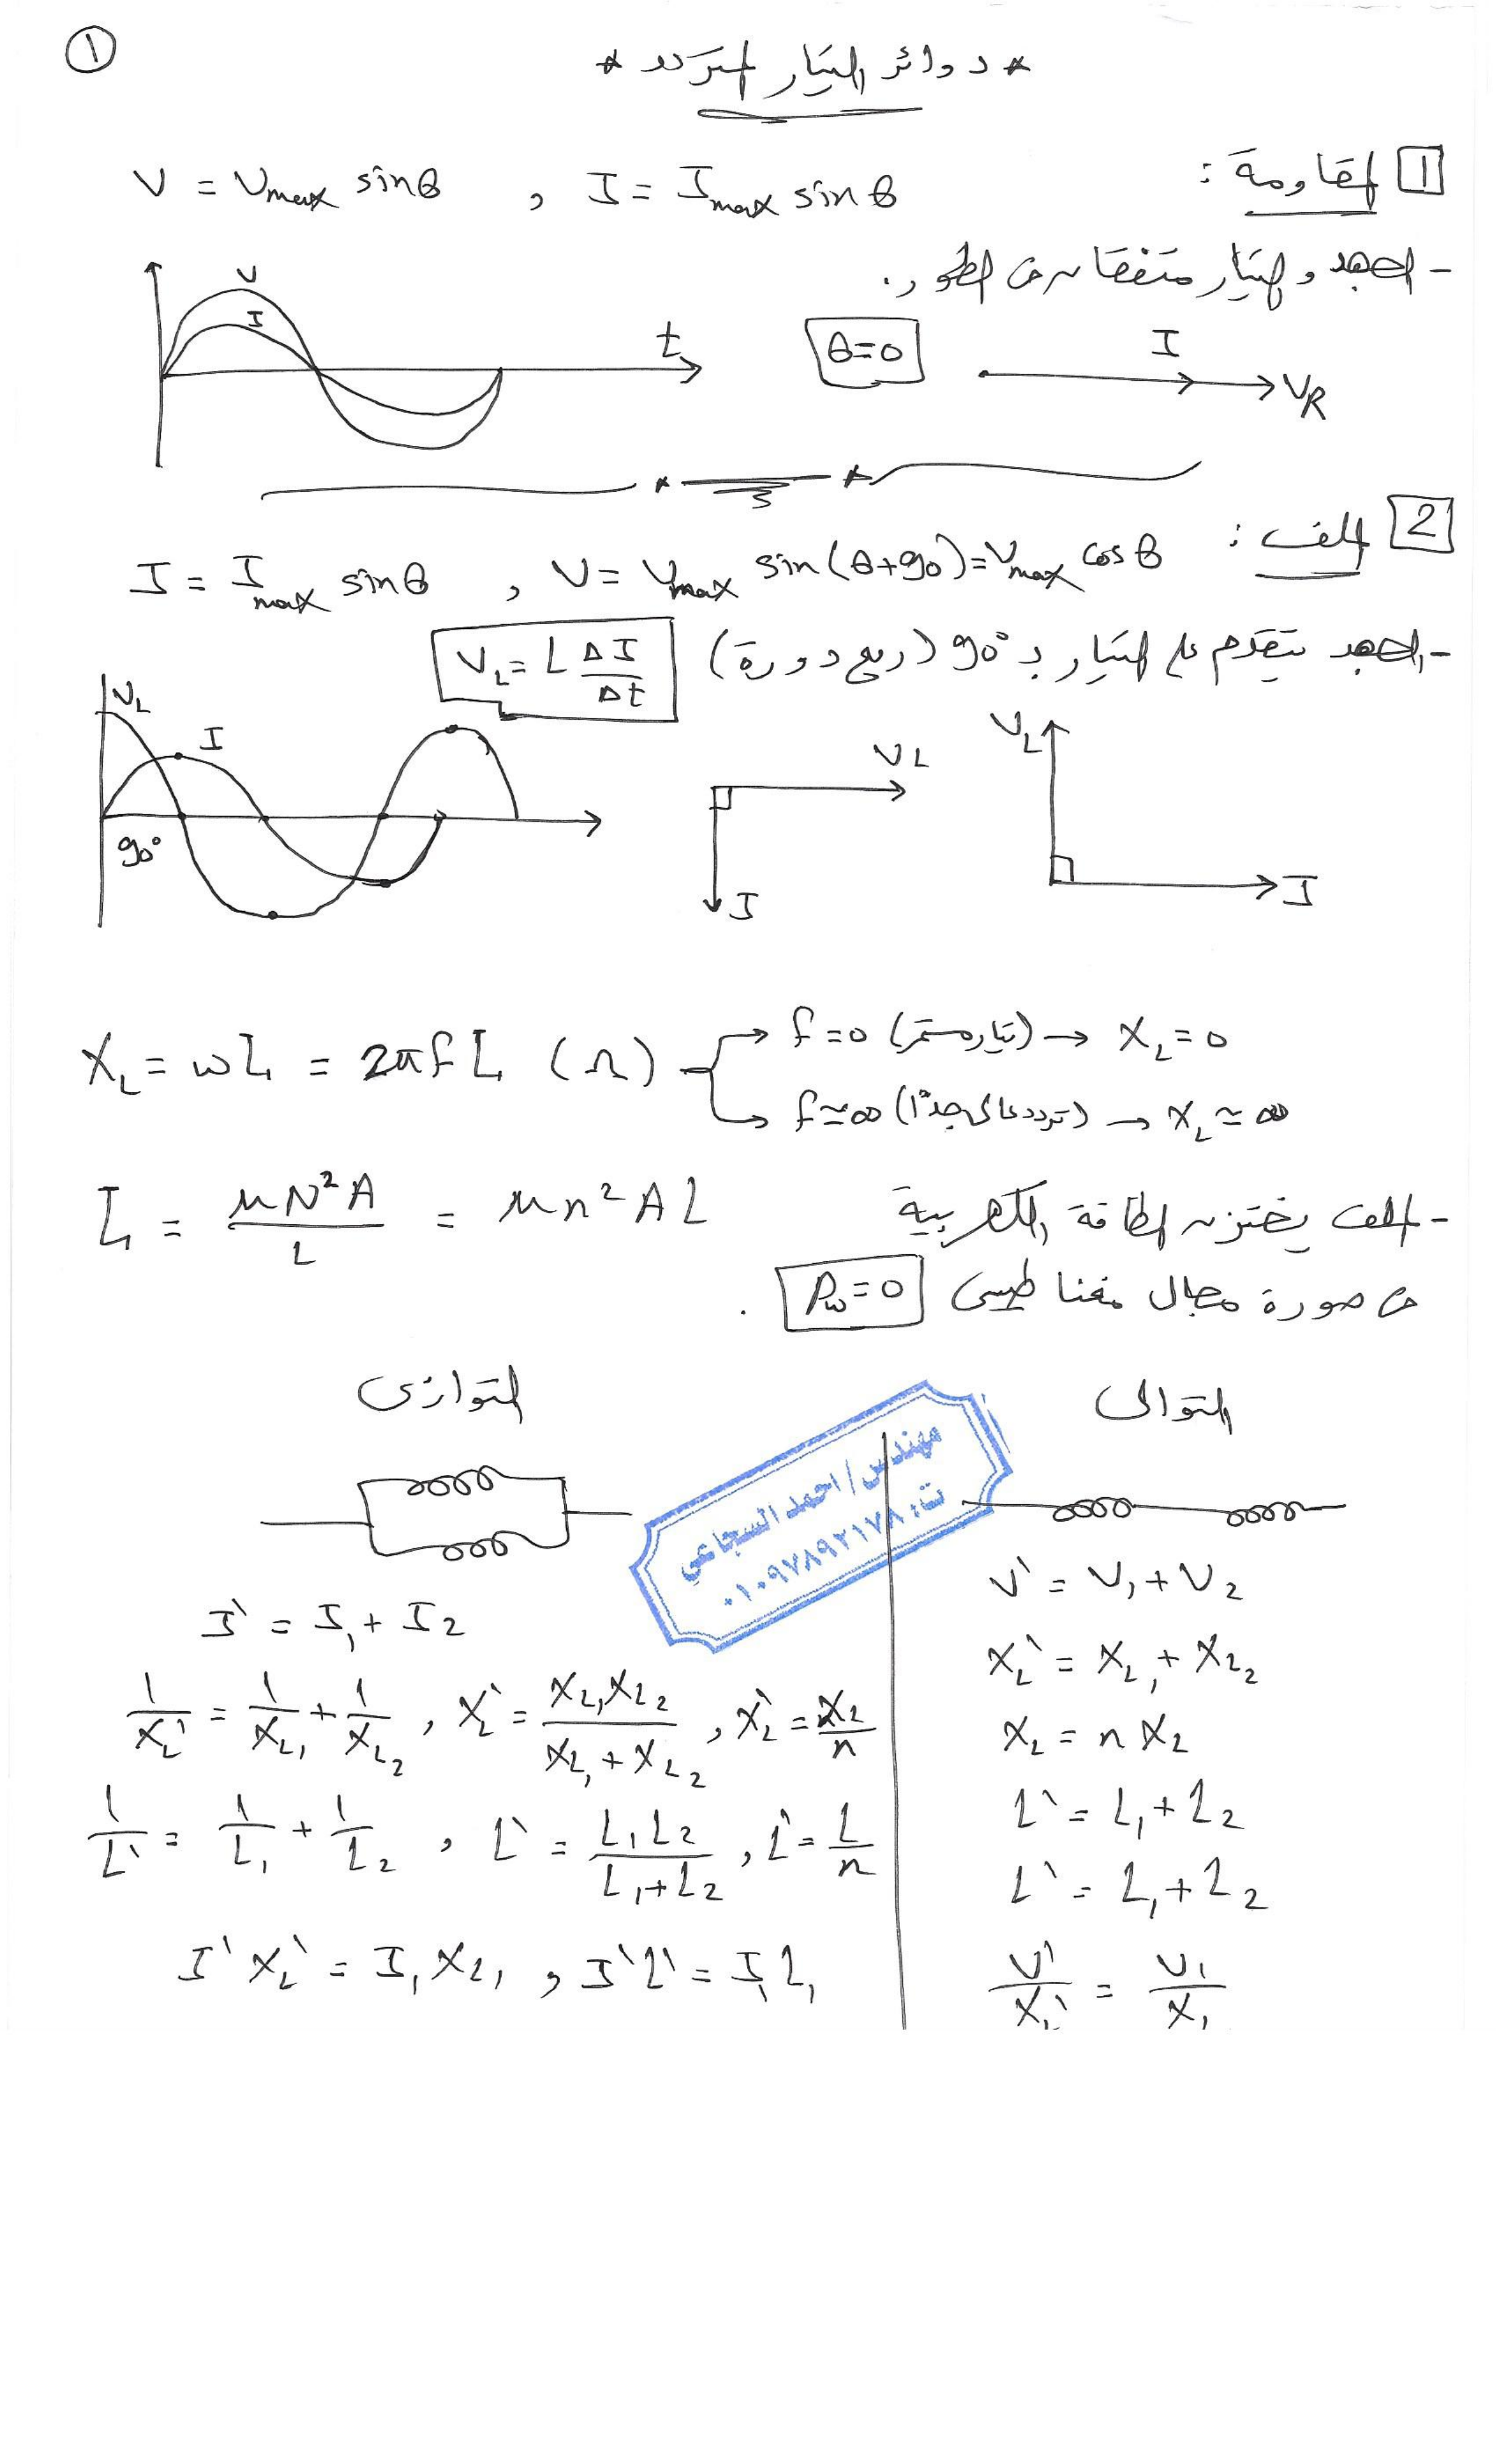 ①
* دوائر التيار المتردد *
1 المقاومة :
V = Vmax sinθ , I = Imax sinθ
- الجهد والتيار متفقان فى الطور.
V
I
t
θ=0
I
VR
2 الملف :
I = Imax sinθ , V = Vmax sin(θ+90) = Vmax cosθ
- الجهد يتقدم على التيار بـ 90° (ربع دورة)
VL = L ΔI/Δt
VL
I
90°
VL
I
VL
I
XL = ωL = 2πfL (Ω)
f=0 (تيار مستمر) → XL=0
f≃∞ (تردد عالى جدًا) → XL≃∞
L = μN²A/L = μn²AL
- الملف يختزن الطاقة الكهربية
فى صورة مجال مغناطيسى Pw=0 .
التوالى
V` = V1 + V2
XL` = XL1 + XL2
XL = n XL
L` = L1 + L2
L` = L1 + L2
V`/XL` = V1/X1
التوازى
I` = I1 + I2
1/XL` = 1/XL1 + 1/XL2 , XL` = XL1XL2/XL1 + XL2 , XL` = XL/n
1/L` = 1/L1 + 1/L2 , L` = L1L2/L1+L2 , L` = L/n
I` XL` = I1 XL1 , I`L` = I1L1
مهندس / احمد السجاعي
ت: ٠١٠٩٧٨٩٢١٧٨